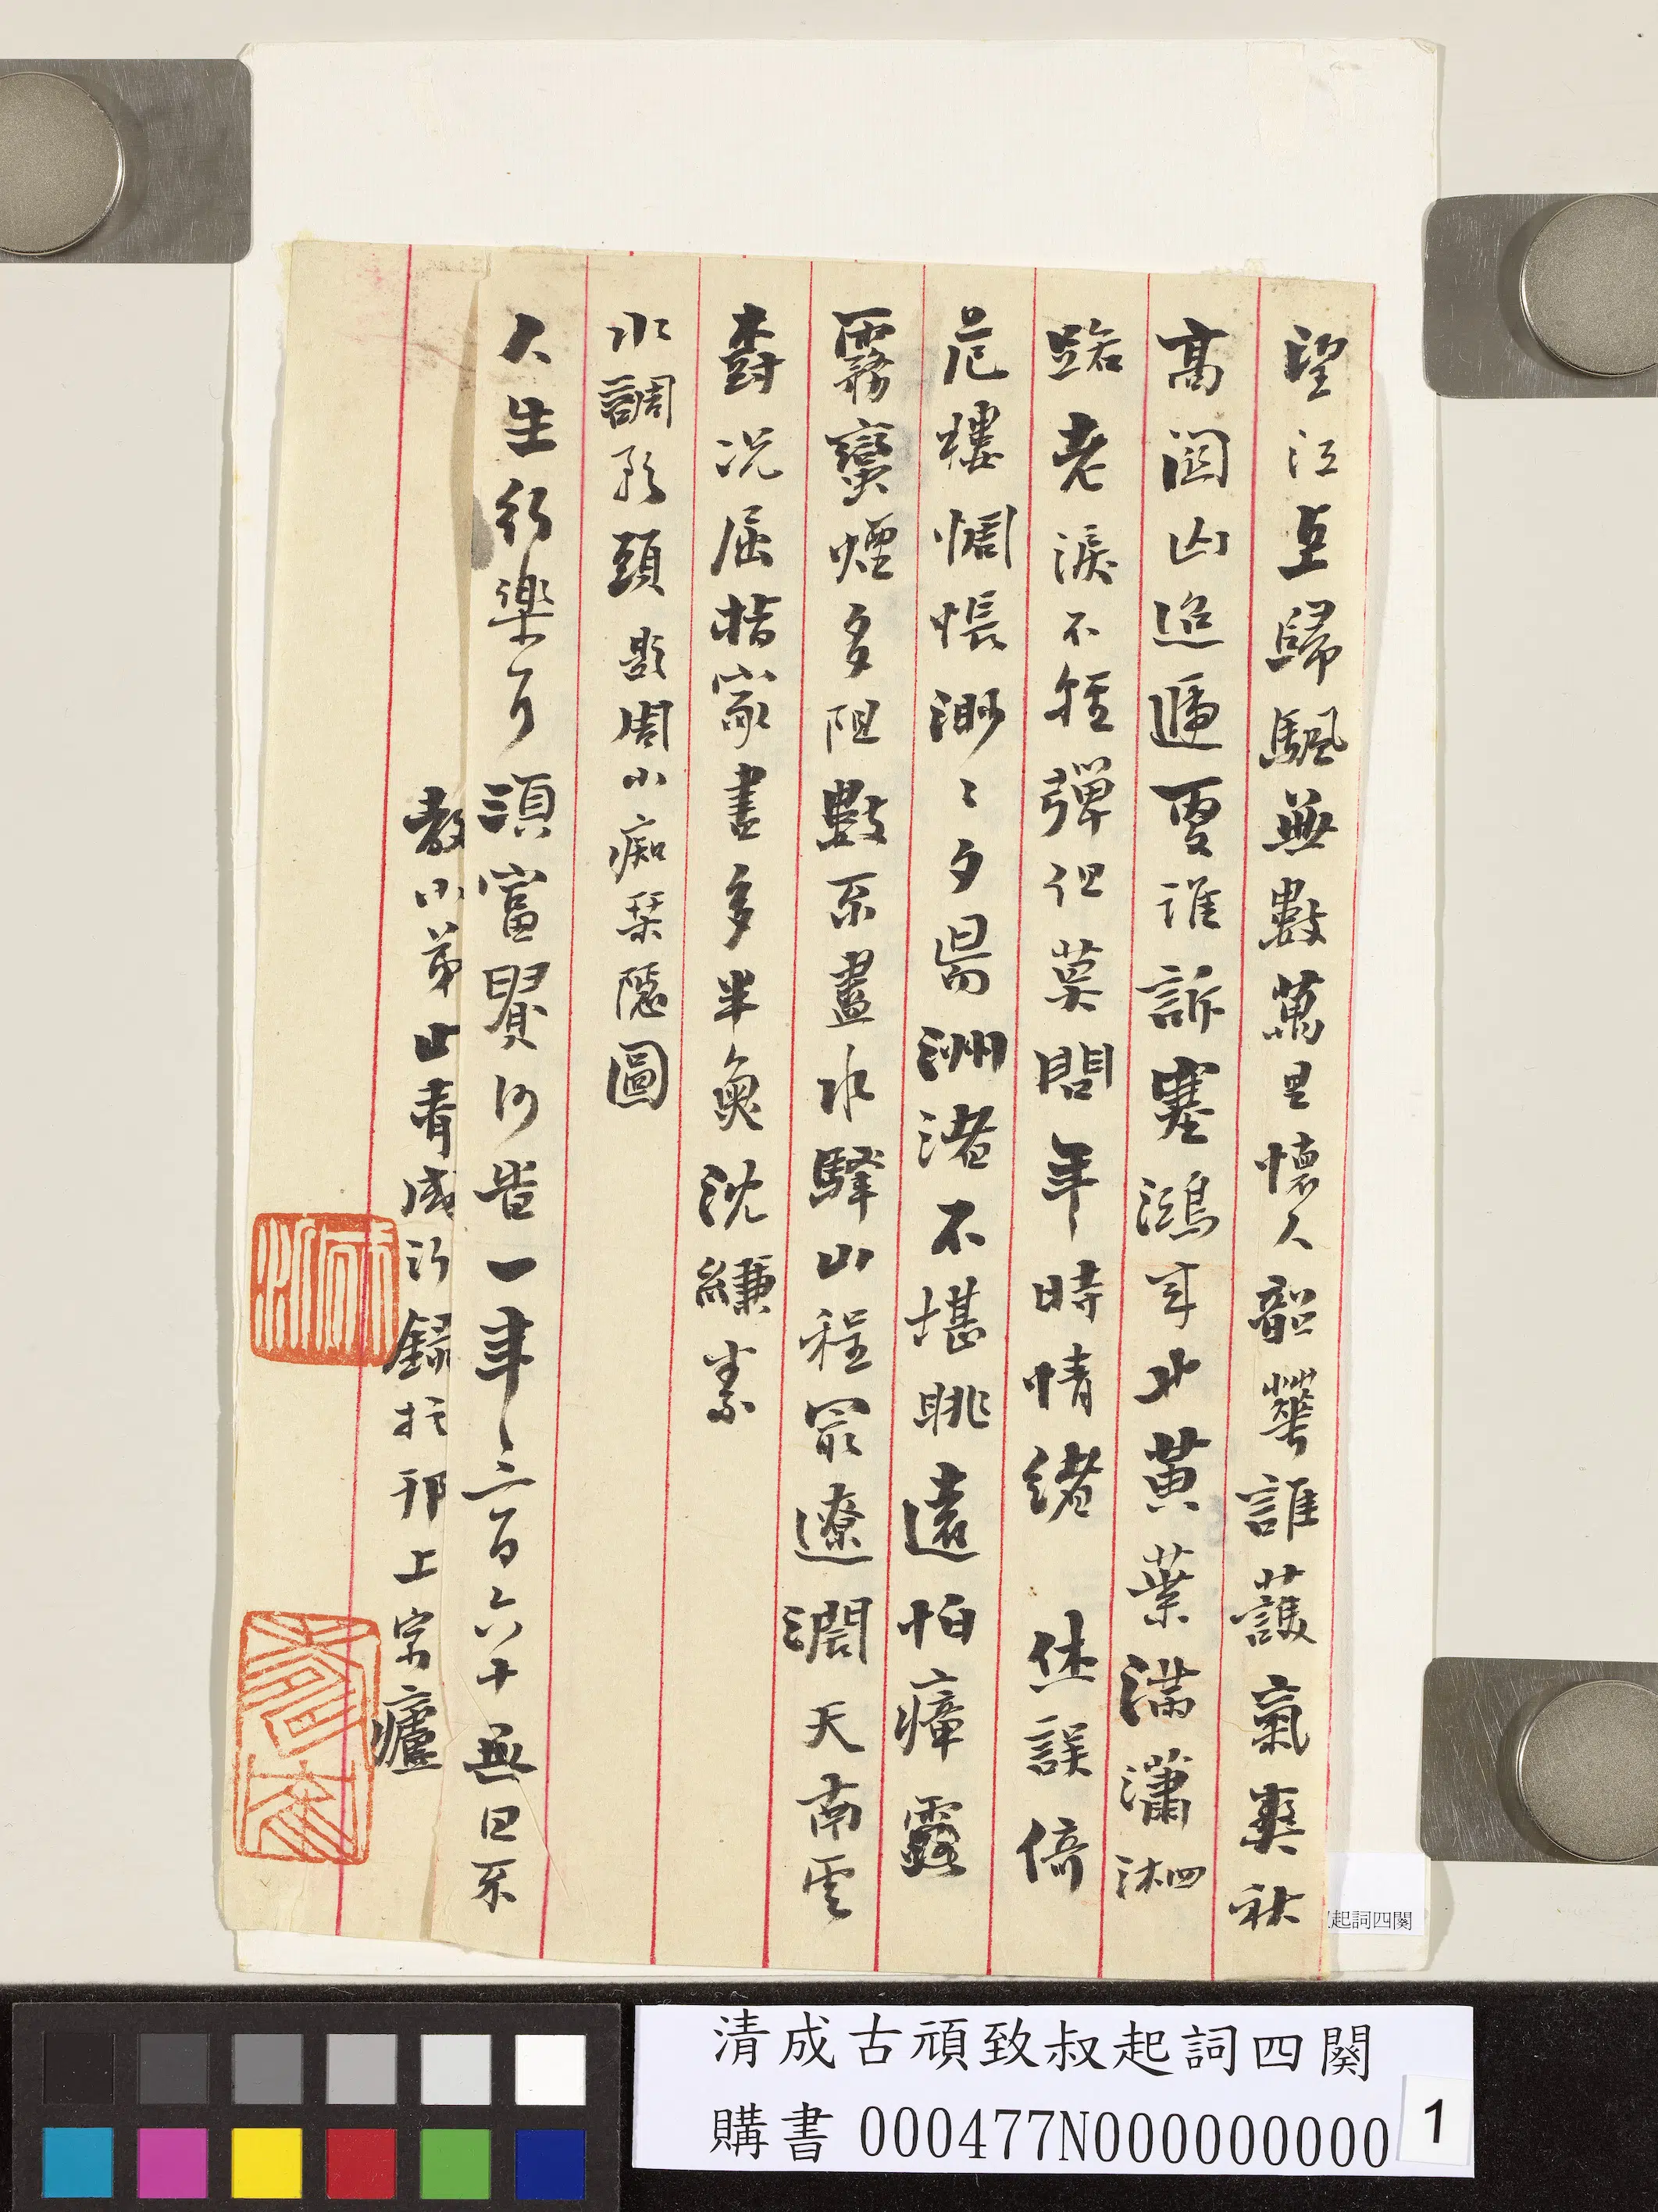 望江亭歸颿無數萬里懷人韶華誰護氣爽秋
高關山迢遞更誰訴塞鴻年北黃葉滿瀟湘
路老淚不輕彈但莫問年時情緒　休誤倚
危樓惆悵渺〻夕陽洲渚不堪眺遠怕瘴露
霧蠻煙多阻數不盡水驛山程最遼濶天南雲
樹況屈指家書多半魚沈縑素
水調歌頭題周小痴琹隱圖
人生行樂耳須富貴何時一年三百六十無日不
教小弟山青成沂錄於邗上宗廬
起詞四闋
清成古頑致叔起詞四闋
購書000477N000000000
1